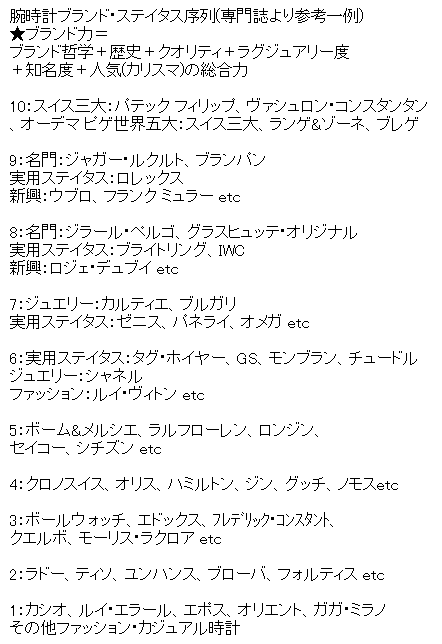 腕時計ブランド・ステイタス序列(専門誌より参考一例)
★ブランド力＝
ブランド哲学＋歴史＋クオリティ＋ラグジュアリー度
＋知名度＋人気(カリスマ)の総合力
10：スイス三大：パテック フィリップ、ヴァシュロン・コンスタンタン
、オーデマ ピゲ世界五大：スイス三大、ランゲ&ゾーネ、ブレゲ
9：名門：ジャガー・ルクルト、ブランパン
実用ステイタス：ロレックス
新興：ウブロ、フランク ミュラー etc
8：名門：ジラール・ペルゴ、グラスヒュッテ・オリジナル
実用ステイタス：ブライトリング、IWC
新興：ロジェ・デュブイ etc
7：ジュエリー：カルティエ、ブルガリ
実用ステイタス：ゼニス、パネライ、オメガ etc
6：実用ステイタス：タグ・ホイヤー、GS、モンブラン、チュードル
ジュエリー：シャネル
ファッション：ルイ・ヴィトン etc
5：ボーム&メルシエ、ラルフローレン、ロンジン、
セイコー、シチズン etc
4：クロノスイス、オリス、ハミルトン、ジン、グッチ、ノモスetc
3：ボールウォッチ、エドックス、ﾌﾚﾃﾞﾘｯｸ・ｺﾝｽﾀﾝﾄ、
クエルボ、モーリス・ラクロア etc
2：ラドー、ティソ、ユンハンス、ブローバ、フォルティス etc
1：カシオ、ルイ・エラール、エポス、オリエント、ガガ・ミラノ
その他ファッション・カジュアル時計